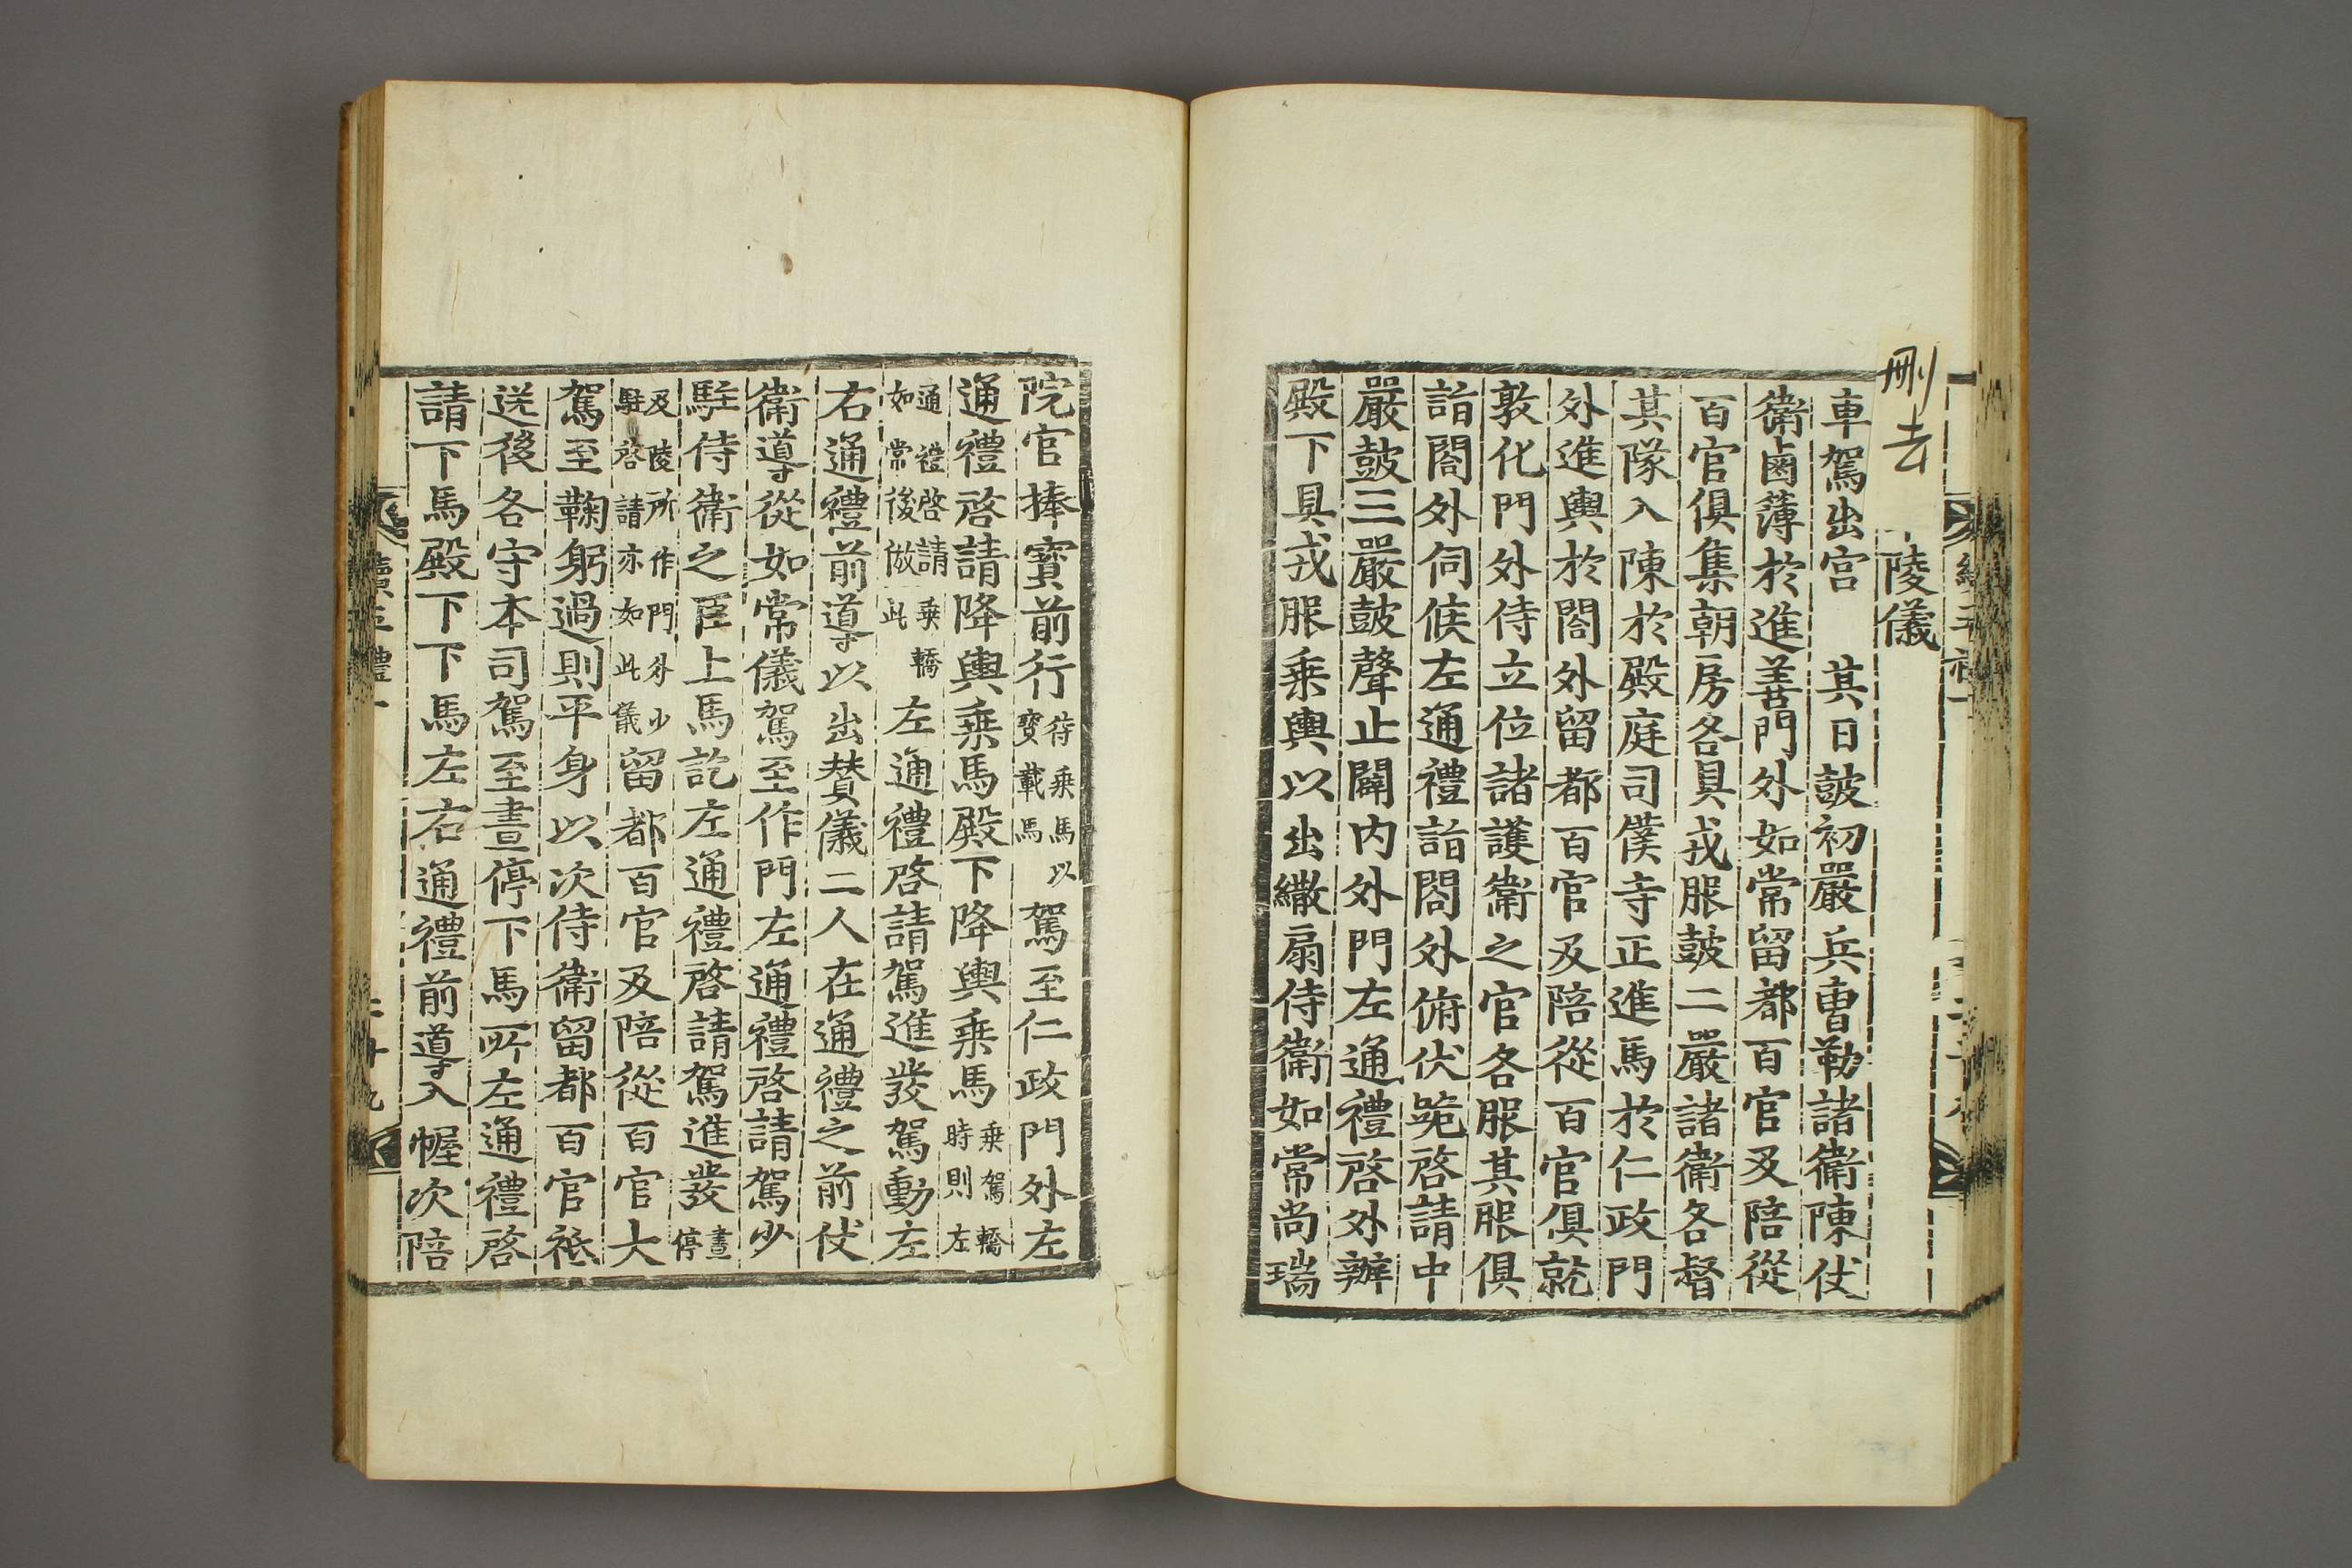 刪去
陵儀
車駕出宮　其日鼓初嚴兵曹勒諸衛陳仗
衛鹵簿於進善門外如常留都百官及陪從
百官俱集朝房各具戎服鼓二嚴諸衛各督
其隊入陳於殿庭司僕寺正進馬於仁政門
外進輿於閤外留都百官及陪從百官俱就
敦化門外侍立位諸護衛之官各服其服俱
詣閤外伺候左通禮詣閤外俯伏跪啓請中
嚴鼓三嚴鼓聲止闢内外門左通禮啓外辦
殿下具戎服乗輿以出繖扇侍衛如常尚瑞
院官捧寶前行待乗馬以寶載馬駕至仁政門外左
通禮啓請降輿乗馬殿下降輿乗馬乗駕轎時則左
通禮啓請乗轎如常後倣此左通禮啓請駕進發駕動左
右通禮前導以出賛儀二人在通禮之前仗
衛導從如常儀駕至作門左通禮啓請駕少
駐侍衛之臣上馬訖左通禮啓請駕進發晝停
及陵所作門外少駐啓請亦如此儀留都百官及陪從百官大
駕至鞠躬過則平身以次侍衛留都百官祗
送後各守本司駕至晝停下馬所左通禮啓
請下馬殿下下馬左右通禮前導入幄次陪
續五禮一